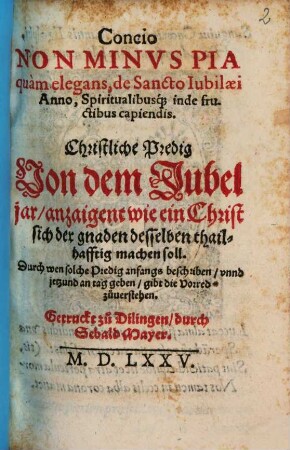 2
Concio
NON MINVS PIA
quàm elegans, de Sancto Iubilæi
Anno, Spiritualibusq́; inde fru-
ctibus capiendis.
Christliche Predig
Von dem Jubel
jar/anzaigent wie ein Christ
sich der gnaden desselben thail-
hafftig machen soll.
Durch wen solche Predig anfangs beschriben/vnnd
jetzund an tag geben/gibt die Vorred
zůuerstehen.
Getruckt zů Dilingen/durch
Sebald Mayer.
M. D. LXXV.